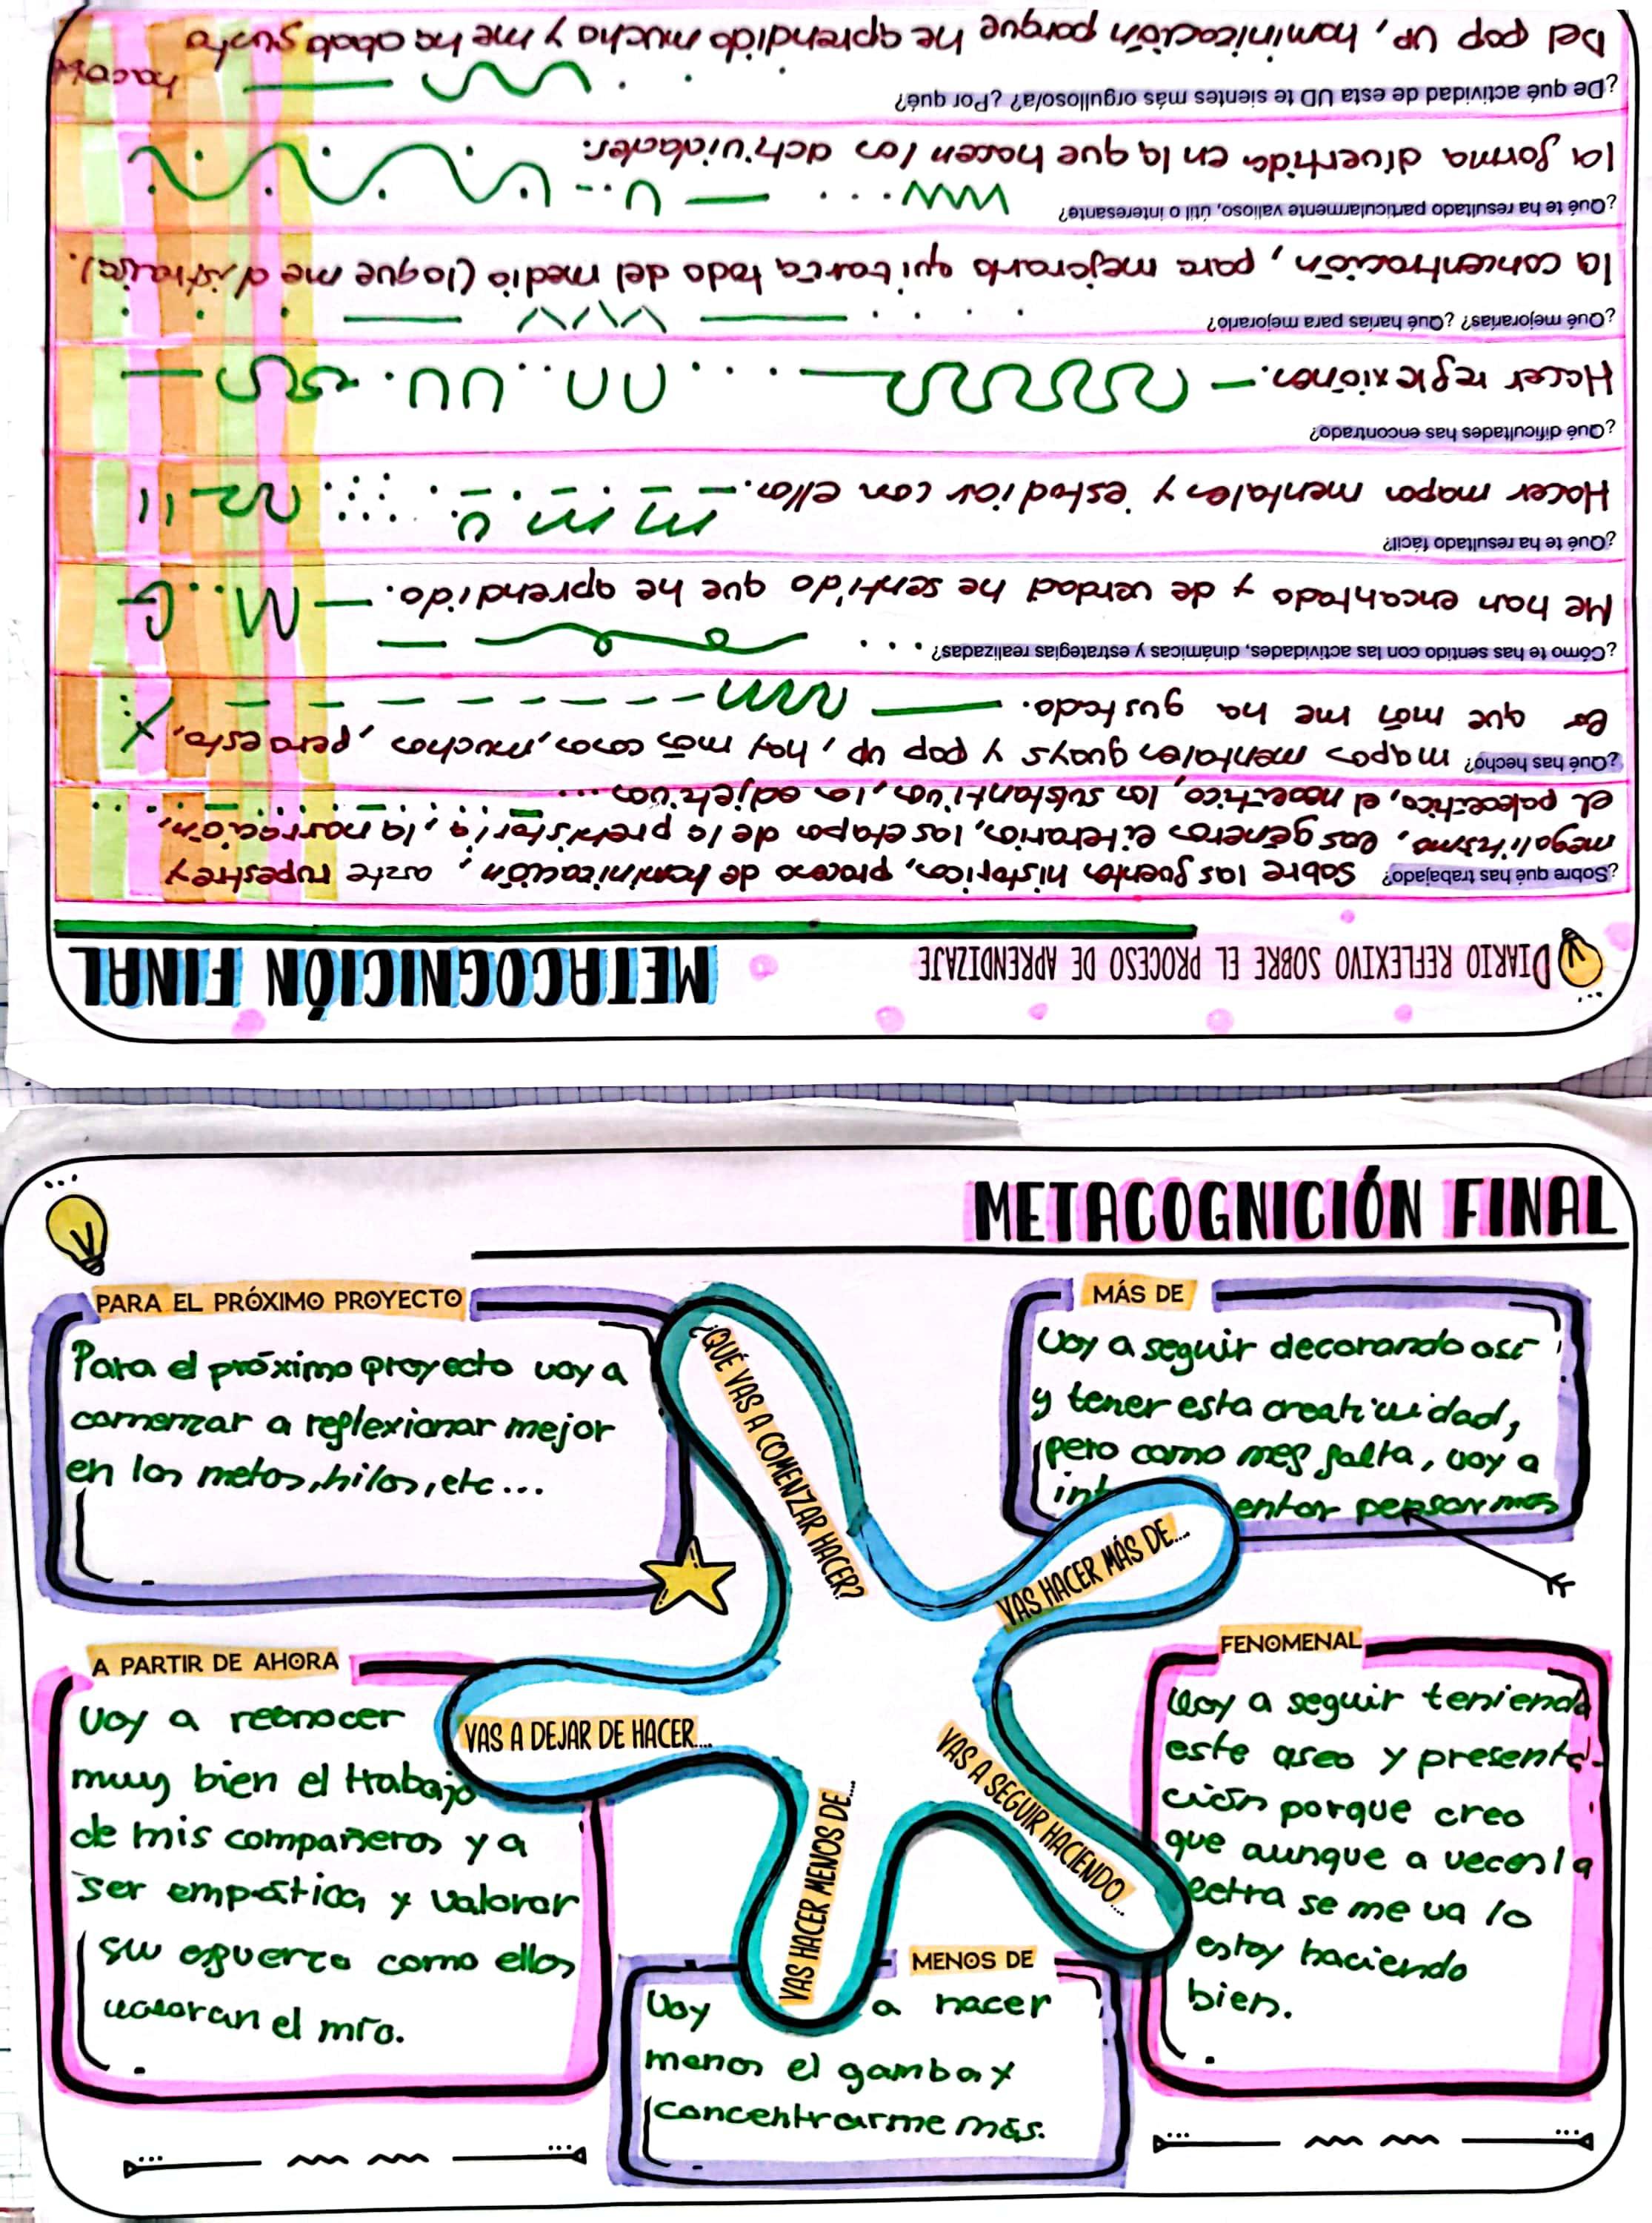 DIARIO REFLEXIVO SOBRE EL PROCESO DE APRENDIZAJE
METACOGNICIÓN FINAL
¿Sobre qué has trabajado? Sobre las fuentes históricas, proceso de hominización, arte rupestre y
megalitismo, los géneros literarios, las etapas de la prehistoria, la narración,
el paleolítico, el neolítico, los substantivos, los adjetivos...
¿Qué has hecho? mapas mentales guays y pop up, hay más cosas, muchas, pero esto,
es que más me ha gustado.
¿Cómo te has sentido con las actividades, dinámicas y estrategias realizadas?
Me han encantado y de verdad he sentido que he aprendido.
¿Qué te ha resultado fácil?
Hacer mapas mentales y estudiar con ellos.
¿Qué dificultades has encontrado?
Hacer reflexiones.
¿Qué mejorarías? ¿Qué harías para mejorarlo?
la concentración, para mejorarlo quitaría todo del medio (lo que me distraiga).
¿Qué te ha resultado particularmente valioso, útil o interesante?
la forma divertida en la que hacen las actividades.
¿De qué actividad de esta UD te sientes más orgulloso/a? ¿Por qué?
Del pop up, hominización porque he aprendido mucho y me ha dado gusto
hacerlo
METACOGNICIÓN FINAL
PARA EL PRÓXIMO PROYECTO
Para el próximo proyecto voy a
comenzar a reflexionar mejor
en las metas, hilos, etc...
¿QUÉ VAS A COMENZAR HACER?
MÁS DE
Voy a seguir decorando así
y tener esta creatividad,
pero como me falta, voy a
intentar pensar más
VAS HACER MÁS DE....
A PARTIR DE AHORA
Voy a reconocer
muy bien el trabajo
de mis compañeros y a
ser empática y valorar
su esfuerzo como ellos
valoran el mío.
VAS A DEJAR DE HACER....
FENOMENAL
Voy a seguir teniendo
este aseo y presenta-
ción porque creo
que aunque a veces la
letra se me va lo
estoy haciendo
bien.
VAS A SEGUIR HACIENDO....
MENOS DE
Voy a hacer
menos el gamba y
concentrarme más.
VAS HACER MENOS DE....